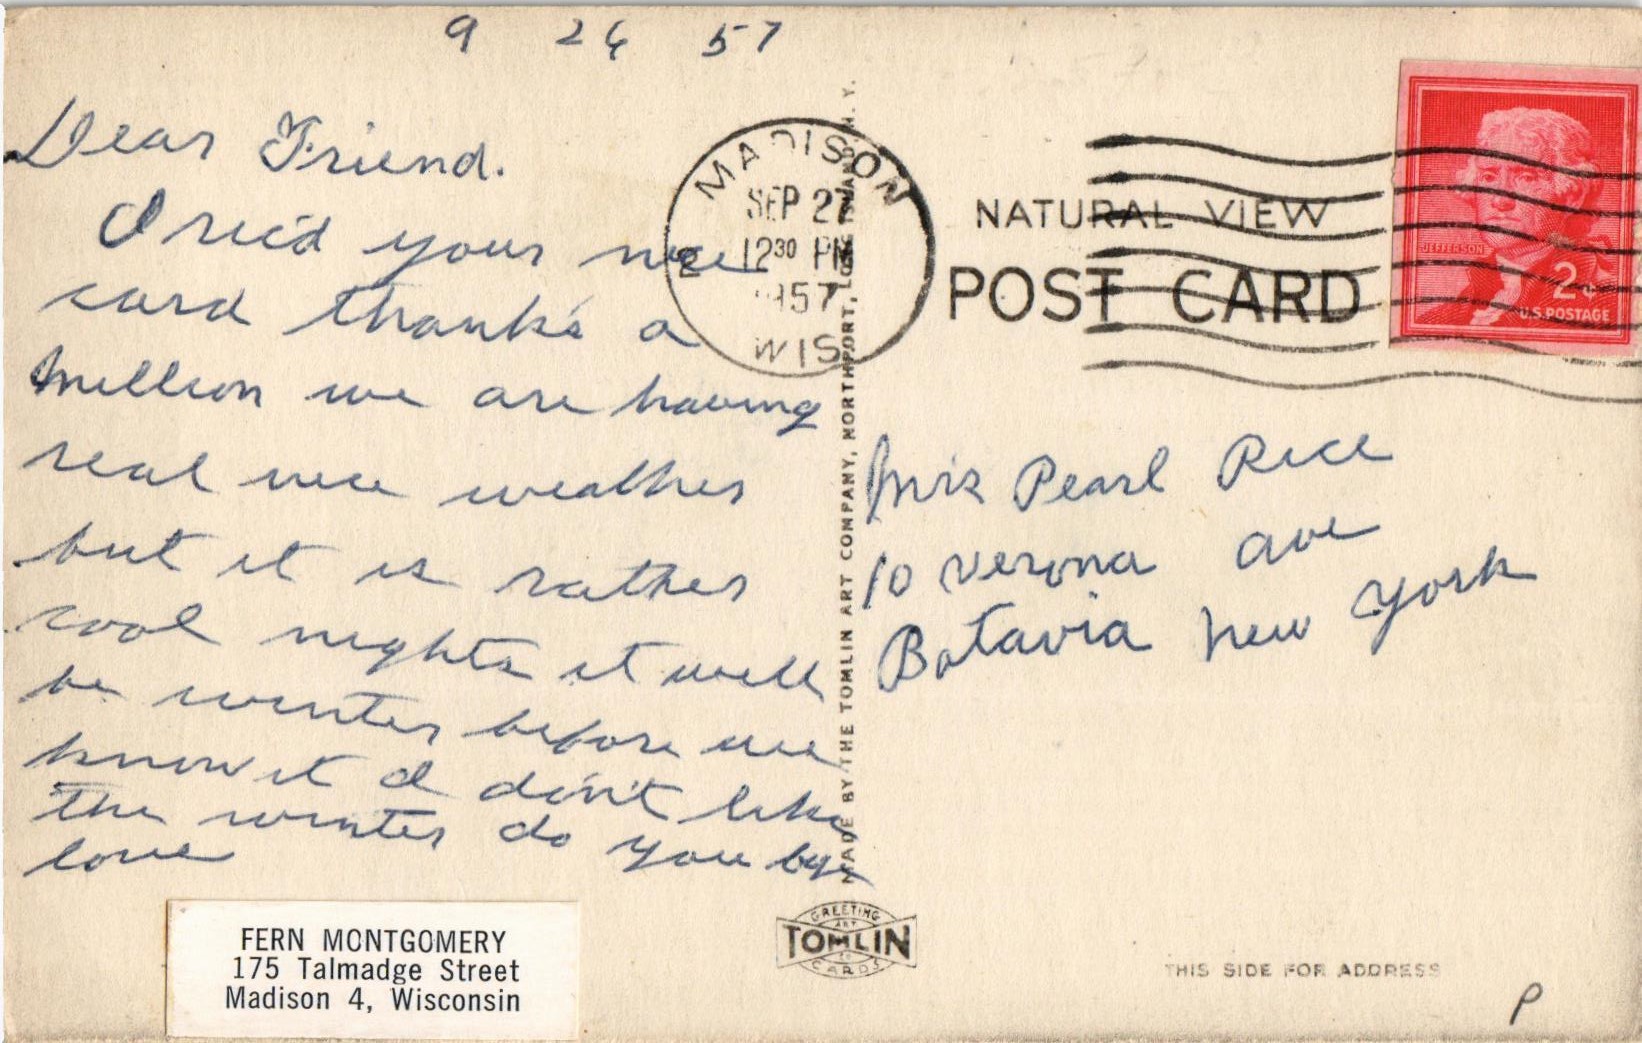 9 26 57
Dear Friend.
I rec'd your nice
card thanks a
million we are having
real nice weather
but it is rather
cool nights it will
be winter before we
know it I don't like
the winter do you bye
love
FERN MONTGOMERY
175 Talmadge Street
Madison 4, Wisconsin
MADISON
SEP 27
12 30 PM
1957
WIS.
MADE BY THE TOMLIN ART COMPANY, NORTHPORT, LONG ISLAND, N. Y.
GREETING
ART
TOMLIN
CO
CARDS
NATURAL VIEW
POST CARD
JEFFERSON
2¢
U.S. POSTAGE
Mrs Pearl Rice
10 Verona Ave
Batavia New York
THIS SIDE FOR ADDRESS
P